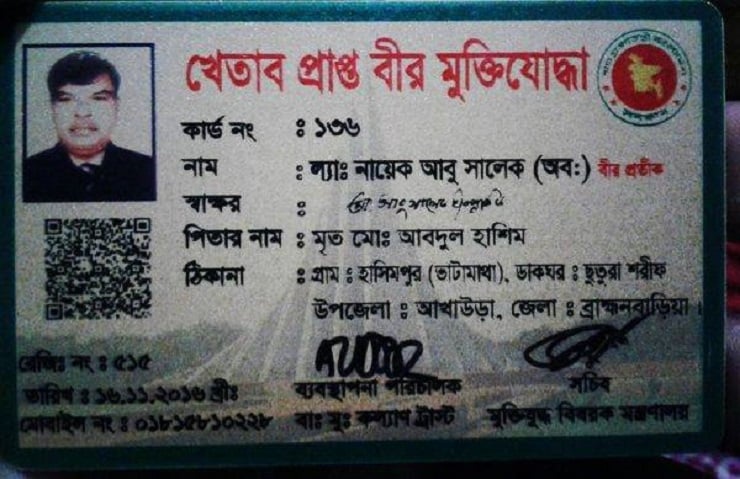 খেতাব প্রাপ্ত বীর মুক্তিযোদ্ধা
কার্ড নং : ১৩৬
নাম : ল্যাঃ নায়েক আবু সালেক (অবঃ) বীর প্রতীক
স্বাক্ষর :
পিতার নাম : মৃত মোঃ আবদুল হাশিম
ঠিকানা : গ্রাম : হাসিমপুর (ভাটামাথা), ডাকঘর : ছতুরা শরীফ
উপজেলা : আখাউড়া, জেলা : ব্রাহ্মনবাড়িয়া।
রেজিঃ নং : ৫১৫
তারিখ : ১৬.১১.২০১৬ খ্রীঃ
ব্যবস্থাপনা পরিচালক
সচিব
মোবাইল নং : ০১৮১৫৮১০২২৮
বাঃ মুঃ কল্যাণ ট্রাস্ট
মুক্তিযুদ্ধ বিষয়ক মন্ত্রণালয়